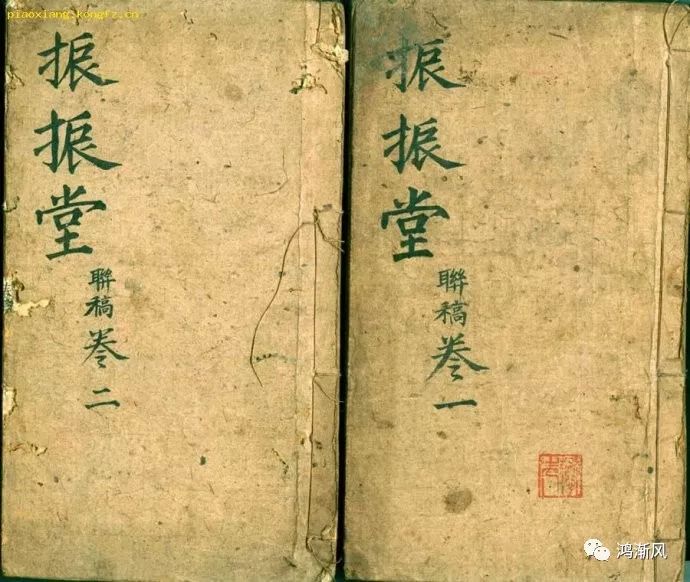 piaoxiang.kongfz.cn
振振堂
聯稿
卷一
振振堂
聯稿
卷二
鸿渐风